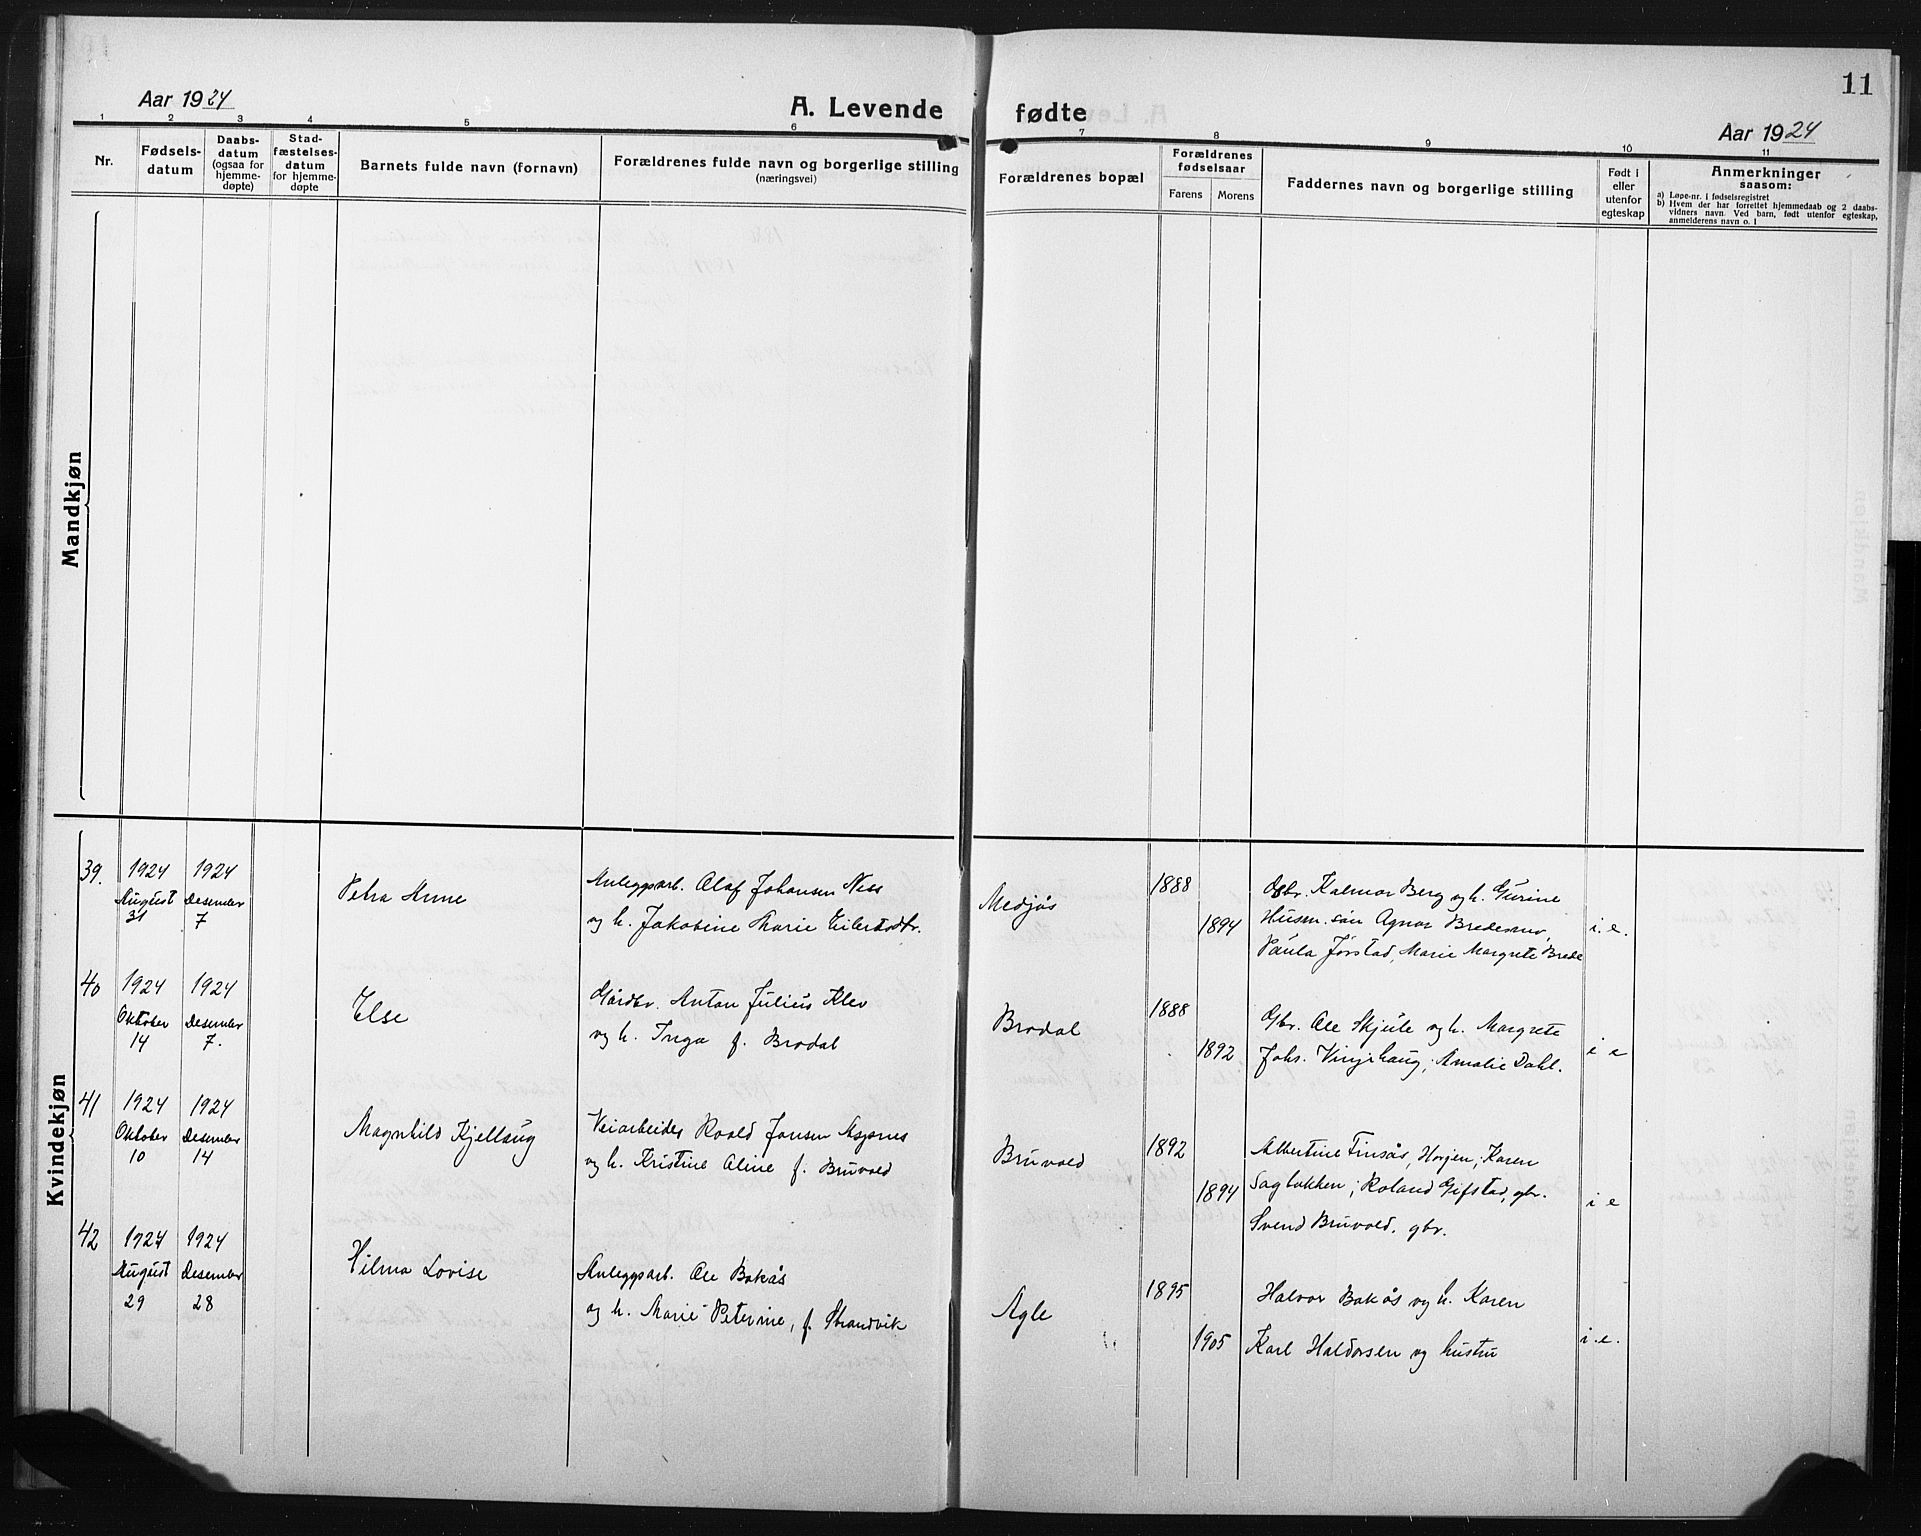 11
Aar 1924
A. Levende fødte
Aar 1924
1 2 3 4 5 6 7 8 9 10 11
Nr.
Fødsels-
datum
Daabs-
datum
(ogsaa for
hjemme-
døpte)
Stad-
fæstelses-
datum
for hjemme-
døpte
Barnets fulde navn (fornavn)
Forældrenes fulde navn og borgerlige stilling
(næringsvei)
Forældrenes bopæl
Forældrenes
fødselsaar
Farens Morens
Faddernes navn og borgerlige stilling
Født i
eller
utenfor
egteskap
Anmerkninger
saasom:
a) Løpe-nr. i fødselsregistret
b) Hvem der har forrettet hjemmedaab og 2 daabs-
vidners navn. Ved barn, født utenfor egteskap,
anmelderens navn o. l
Mandkjøn
Kvindekjøn
39. 1924 August 31
1924 Desember 7
Petra Anne
Anleggsarb. Olaf Johansen Ness
og h. Jakobine Marie
Medjås
1888
1894
Gbr. Kalmar Berg og h. Gurine
Husm. søn Agnar Bredesmo,
Paula Jørstad, Marie Margrete Brede
i. e.
40 1924 Oktober 14
1924 Desember 7.
Else
Gårdbr. Anton Julius Klev
og h. Inga f. Brødal
Brødal
1888
1892
Gbr. Ole Skjule og h. Margrete
Johs. Vingehaug, Amalie Dahl.
i e
41 1924 Oktober 10
1924 Desember 14
Magnhild Kjellaug
Veiarbeider Roald Jansen Aspnes
og h. Kristine Aline f. Bruvold
Bruvold
1892
1894
Albertine Finsås, Horjen, Karen
Sagbakken; Roland Gifstad, gbr.
Svend Bruvold, gbr.
i e
42 1924 August 29
1924 Desember 28
Hilma Lovise
Anleggsarb. Ole Bakås
og h. Marie Peterine, f. Strandvik
Agle
1895
1905
Halvor Bakås og h. Karen
Karl Haldorsen og hustru
i. e.